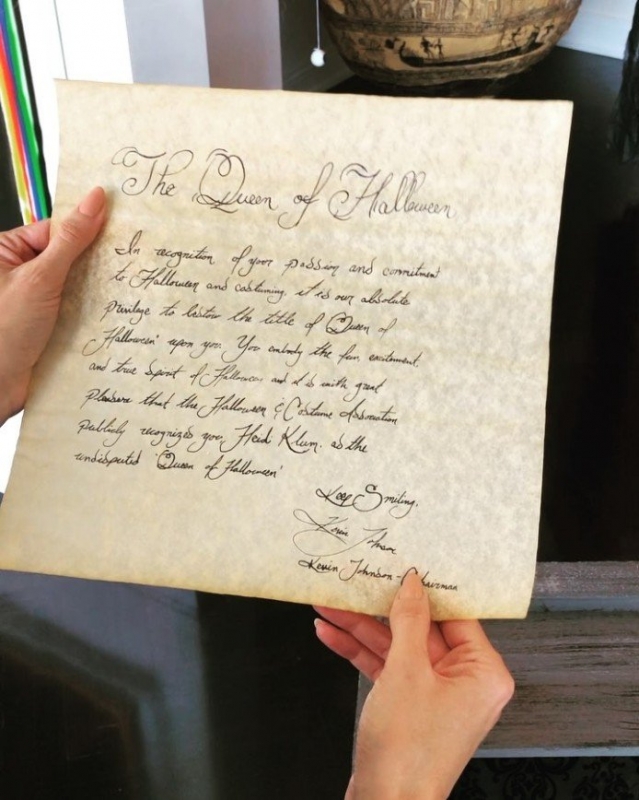 The Queen of Halloween
In recognition of your passion and commitment
to Halloween and costuming, it is our absolute
privilege to bestow the title of Queen of
Halloween' upon you. You embody the fun, excitement,
and true Spirit of Halloween and it is with great
pleasure that the Halloween & Costume Association
publicly recognizes you, Heidi Klum, as the
undisputed 'Queen of Halloween'
Keep Smiling,
Kevin Johnson
Kevin Johnson - Chairman